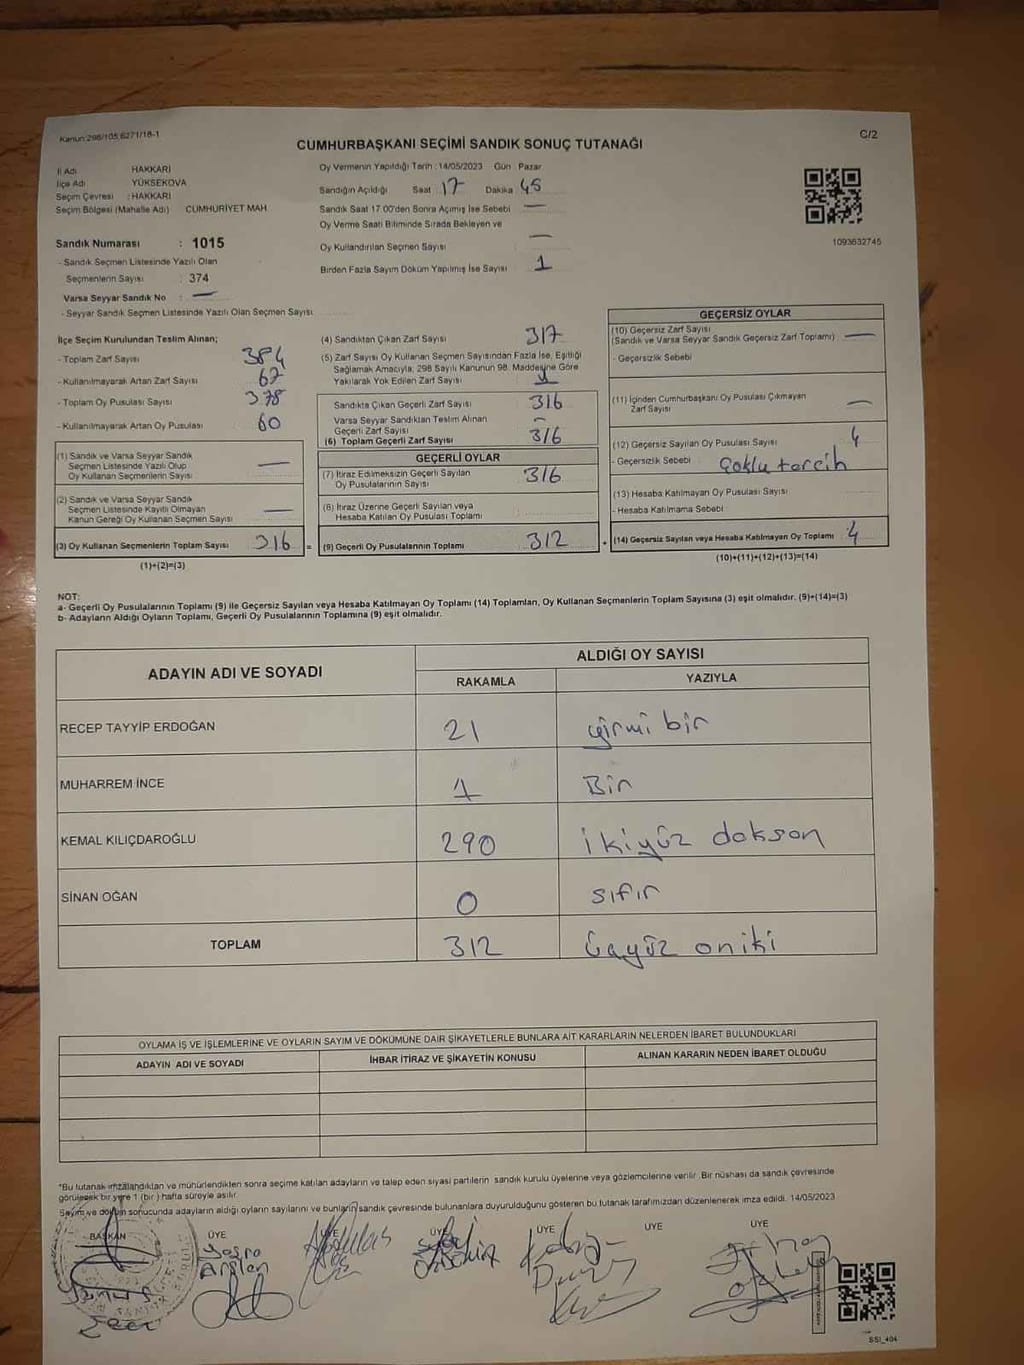 Kanun:298/105;6271/18-1
C/2
CUMHURBAŞKANI SEÇİMİ SANDIK SONUÇ TUTANAĞI
İl Adı HAKKARİ
İlçe Adı YÜKSEKOVA
Seçim Çevresi : HAKKARİ
Seçim Bölgesi (Mahalle Adı) CUMHURİYET MAH.
Sandık Numarası : 1015
- Sandık Seçmen Listesinde Yazılı Olan
Seçmenlerin Sayısı : 374
Varsa Seyyar Sandık No : —
- Seyyar Sandık Seçmen Listesinde Yazılı Olan Seçmen Sayısı
Oy Vermenin Yapıldığı Tarih : 14/05/2023 Gün : Pazar
Sandığın Açıldığı Saat : 17 Dakika : 45
Sandık Saat 17.00'den Sonra Açımış İse Sebebi —
Oy Verme Saati Bitiminde Sırada Bekleyen ve
Oy Kullandırılan Seçmen Sayısı —
Birden Fazla Sayım Döküm Yapılmış İse Sayısı 1
1093632745
İlçe Seçim Kurulundan Teslim Alınan;
- Toplam Zarf Sayısı 384
- Kullanılmayarak Artan Zarf Sayısı 67
- Toplam Oy Pusulası Sayısı 378
- Kullanılmayarak Artan Oy Pusulası 60
(1) Sandık ve Varsa Seyyar Sandık
Seçmen Listesinde Yazılı Olup
Oy Kullanan Seçmenlerin Sayısı —
(2) Sandık ve Varsa Seyyar Sandık
Seçmen Listesinde Kayıtlı Olmayan
Kanun Gereği Oy Kullanan Seçmen Sayısı —
(3) Oy Kullanan Seçmenlerin Toplam Sayısı 316 =
(1)+(2)=(3)
(4) Sandıktan Çıkan Zarf Sayısı 317
(5) Zarf Sayısı Oy Kullanan Seçmen Sayısından Fazla İse, Eşitliği
Sağlamak Amacıyla, 298 Sayılı Kanunun 98. Maddesine Göre
Yakılarak Yok Edilen Zarf Sayısı 1
Sandıkta Çıkan Geçerli Zarf Sayısı 316
Varsa Seyyar Sandıktan Teslim Alınan
Geçerli Zarf Sayısı —
(6) Toplam Geçerli Zarf Sayısı 316
GEÇERLİ OYLAR
(7) İtiraz Edilmeksizin Geçerli Sayılan
Oy Pusulalarının Sayısı 316
(8) İtiraz Üzerine Geçerli Sayılan veya
Hesaba Katılan Oy Pusulası Toplamı
(9) Geçerli Oy Pusulalarının Toplamı 312 +
GEÇERSİZ OYLAR
(10) Geçersiz Zarf Sayısı
(Sandık ve Varsa Seyyar Sandık Geçersiz Zarf Toplamı) —
- Geçersizlik Sebebi
(11) İçinden Cumhurbaşkanı Oy Pusulası Çıkmayan
Zarf Sayısı —
(12) Geçersiz Sayılan Oy Pusulası Sayısı 4
- Geçersizlik Sebebi Çoklu tercih
(13) Hesaba Katılmayan Oy Pusulası Sayısı
- Hesaba Katılmama Sebebi
(14) Geçersiz Sayılan veya Hesaba Katılmayan Oy Toplamı 4
(10)+(11)+(12)+(13)=(14)
NOT:
a- Geçerli Oy Pusulalarının Toplamı (9) ile Geçersiz Sayılan veya Hesaba Katılmayan Oy Toplamı (14) Toplamları, Oy Kullanan Seçmenlerin Toplam Sayısına (3) eşit olmalıdır. (9)+(14)=(3)
b- Adayların Aldığı Oyların Toplamı, Geçerli Oy Pusulalarının Toplamına (9) eşit olmalıdır.
ADAYIN ADI VE SOYADI ALDIĞI OY SAYISI
RAKAMLA YAZIYLA
RECEP TAYYİP ERDOĞAN 21 yirmi bir
MUHARREM İNCE 1 Bir
KEMAL KILIÇDAROĞLU 290 ikiyüz dokson
SİNAN OĞAN 0 sıfır
TOPLAM 312 üçyüz oniki
OYLAMA İŞ VE İŞLEMLERİNE VE OYLARIN SAYIM VE DÖKÜMÜNE DAİR ŞİKAYETLERLE BUNLARA AİT KARARLARIN NELERDEN İBARET BULUNDUKLARI
ADAYIN ADI VE SOYADI İHBAR İTİRAZ VE ŞİKAYETİN KONUSU ALINAN KARARIN NEDEN İBARET OLDUĞU
*Bu tutanak imzalandıktan ve mühürlendikten sonra seçime katılan adayların ve talep eden siyasi partilerin sandık kurulu üyelerine veya gözlemcilerine verilir. Bir nüshası da sandık çevresinde
görülecek bir yere 1 (bir) hafta süreyle asılır.
Sayım ve döküm sonucunda adayların aldığı oyların sayılarını ve bunların sandık çevresinde bulunanlara duyurulduğunu gösteren bu tutanak tarafımızdan düzenlenerek imza edildi. 14/05/2023
BAŞKAN ÜYE ÜYE ÜYE ÜYE ÜYE
Arslan
SSI_404